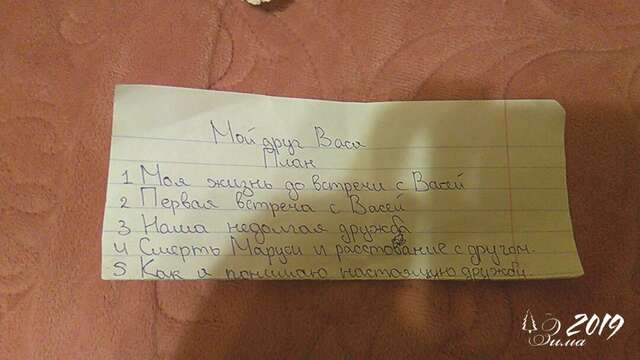 Мой друг Вася
План
1 Моя жизнь до встречи с Васей
2 Первая встреча с Васей
3 Наша недолгая дружба
4 Смерть Маруси и расстование с другом.
5 Как я понимаю настоящую дружбу.
2019
Зима